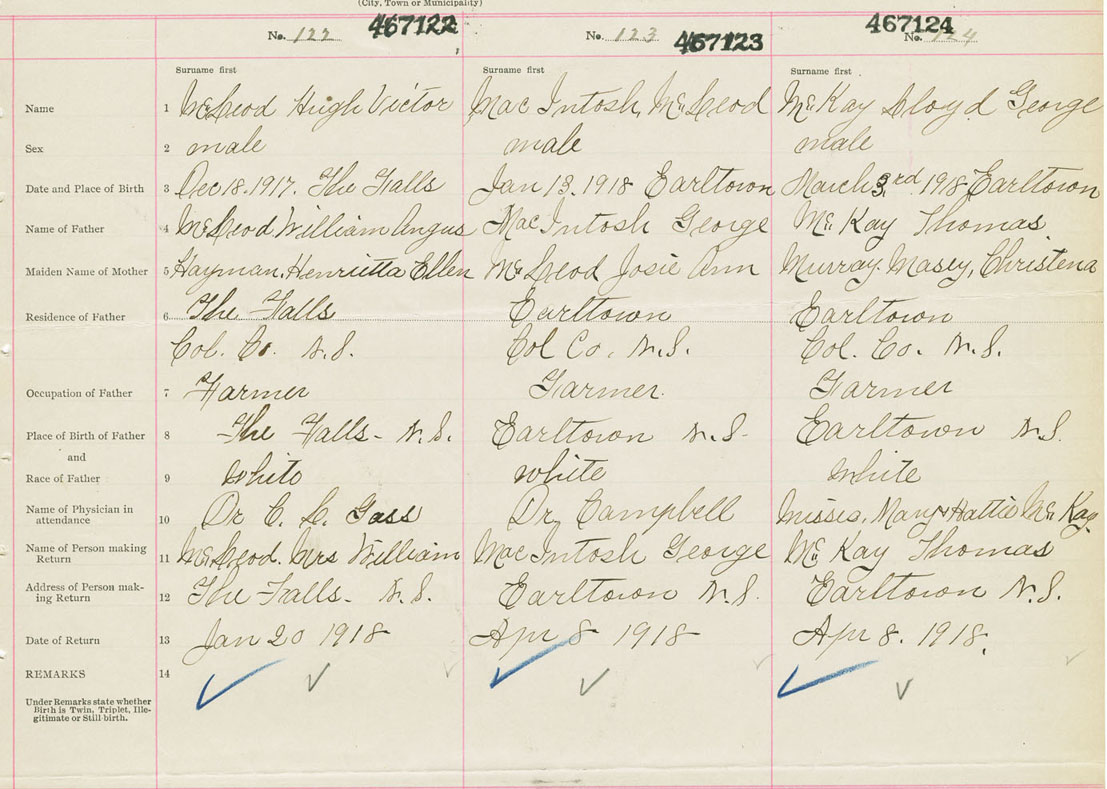 (City, Town or Municipality)
No. 122 467122 No. 123 467123 467124 No. 124
Surname first Surname first Surname first
Name 1 McLeod Hugh Victor Mac Intosh, McLeod McKay Lloyd George
Sex 2 male male male
Date and Place of Birth 3 Dec 18. 1917. The Falls Jan 13. 1918 Earltown March 3rd 1918 Earltown
Name of Father 4 McLeod William Angus Mac Intosh George McKay Thomas
Maiden Name of Mother 5 Hayman, Henrietta Ellen McLeod Josie Ann Murray. Masey, Christena
Residence of Father 6 The Falls Earltown Earltown
Col. Co. N.S. Col Co. N.S. Col. Co. N.S.
Occupation of Father 7 Farmer Farmer. Farmer
Place of Birth of Father 8 The Falls - N.S. Earltown N.S. Earltown N.S.
and
Race of Father 9 White white White
Name of Physician in
attendance 10 Dr C. L. Gass Dr, Campbell Misses. Mary & Hattie McKay.
Name of Person making
Return 11 McLeod. Mrs William Mac Intosh George McKay Thomas
Address of Person mak-
ing Return 12 The Falls - N.S. Earltown N.S. Earltown N.S.
Date of Return 13 Jan 20 1918 Apr 8 1918 Apr 8. 1918.
REMARKS 14
Under Remarks state whether
Birth is Twin, Triplet, Ille-
gitimate or Still-birth.